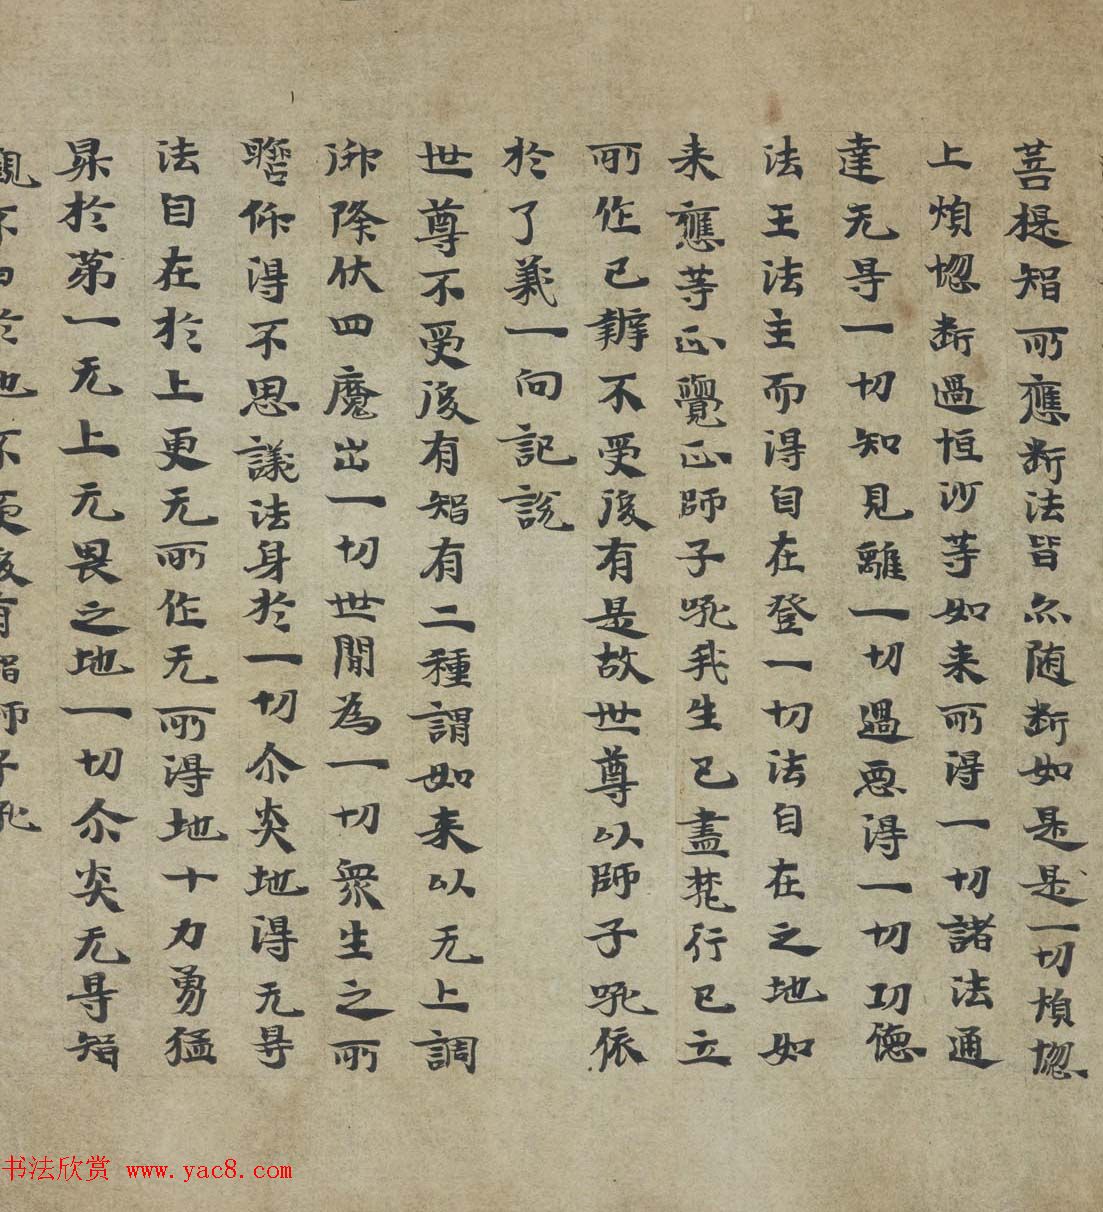 菩提智所應断法皆亦随断如是是一切煩惱
上煩惱断過恒沙等如来所得一切諸法通
達无㝵一切知見離一切過惡得一切功德
法王法主而得自在登一切法自在之地如
来應等正覺正師子吼我生已盡梵行已立
所作已辦不受後有是故世尊以師子吼依
於了義一向記說
世尊不受後有智有二種謂如来以无上調
御降伏四魔出一切世間為一切衆生之所
瞻仰得不思議法身於一切尒炎地得无㝵
法自在於上更无所作无所得地十力勇猛
昇於第一无上无畏之地一切尒炎无㝵智
觀不由於他不受後有智師子吼
书法欣赏 www.yac8.com